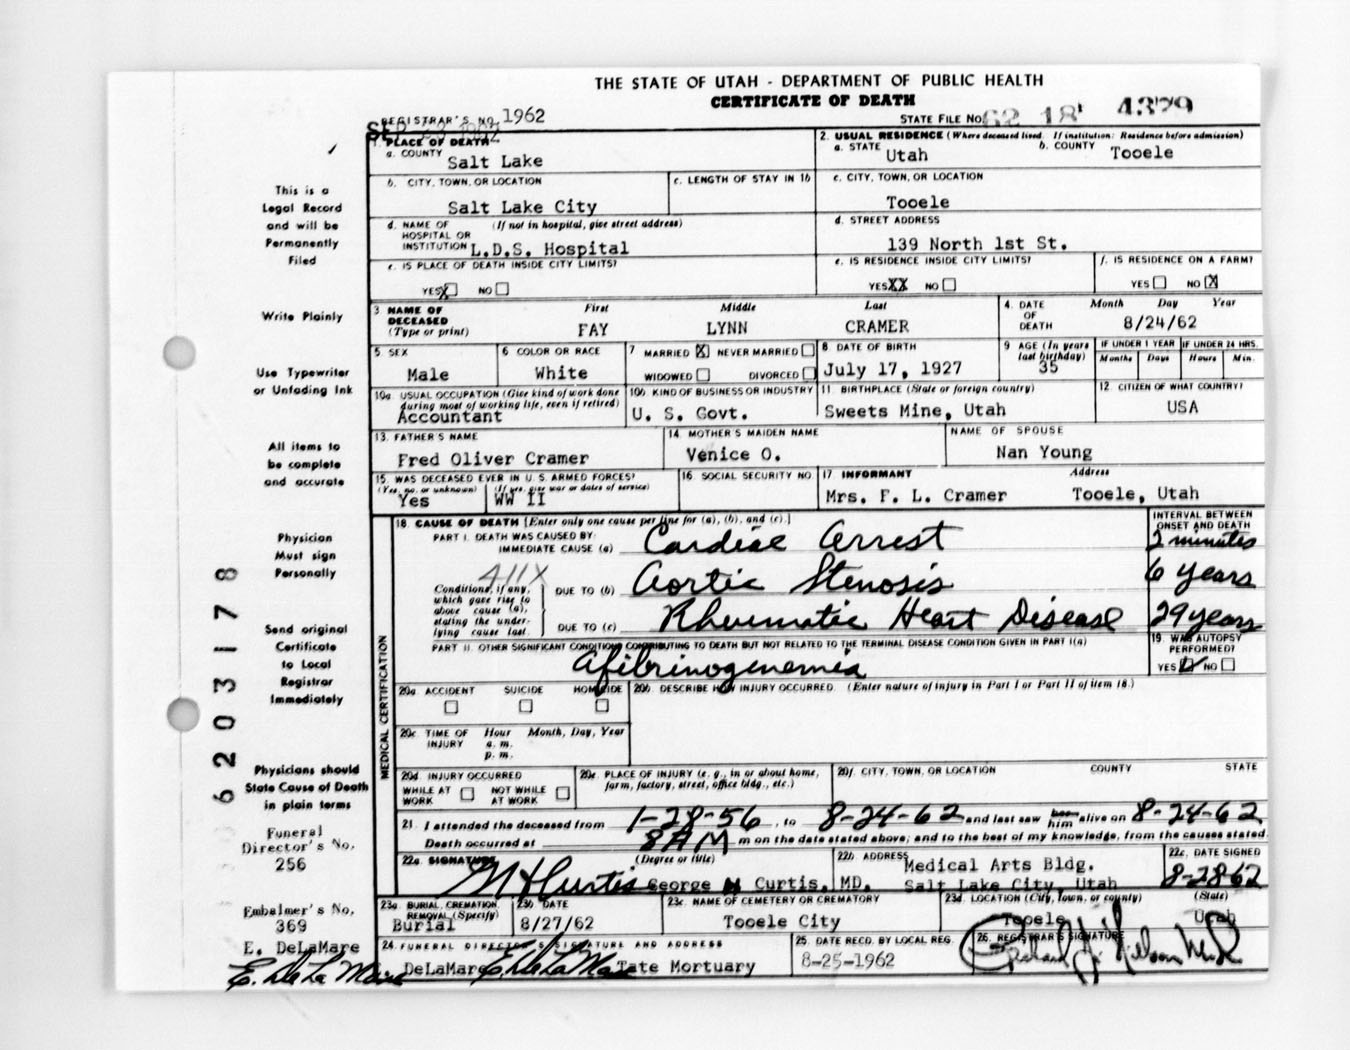 THE STATE OF UTAH - DEPARTMENT OF PUBLIC HEALTH
CERTIFICATE OF DEATH
REGISTRAR'S NO. 1962
STATE FILE NO. 62 18 4379
1. PLACE OF DEATH
a. COUNTY Salt Lake
2. USUAL RESIDENCE (Where deceased lived. If institution: Residence before admission)
a. STATE Utah b. COUNTY Tooele
b. CITY, TOWN, OR LOCATION Salt Lake City
c. LENGTH OF STAY IN 1b
c. CITY, TOWN, OR LOCATION Tooele
d. NAME OF HOSPITAL OR INSTITUTION (If not in hospital, give street address) L.D.S. Hospital
d. STREET ADDRESS 139 North 1st St.
e. IS PLACE OF DEATH INSIDE CITY LIMITS?
YES X NO
e. IS RESIDENCE INSIDE CITY LIMITS?
YES XX NO
f. IS RESIDENCE ON A FARM?
YES NO X
3 NAME OF DECEASED (Type or print)
First Middle Last
FAY LYNN CRAMER
4. DATE OF DEATH Month Day Year
8/24/62
5. SEX Male
6 COLOR OR RACE White
7 MARRIED X NEVER MARRIED
WIDOWED DIVORCED
8 DATE OF BIRTH July 17, 1927
9 AGE (In years last birthday) 35
IF UNDER 1 YEAR Months Days
IF UNDER 24 HRS. Hours Min.
10a. USUAL OCCUPATION (Give kind of work done during most of working life, even if retired) Accountant
10b KIND OF BUSINESS OR INDUSTRY U. S. Govt.
11. BIRTHPLACE (State or foreign country) Sweets Mine, Utah
12 CITIZEN OF WHAT COUNTRY? USA
13. FATHER'S NAME Fred Oliver Cramer
14 MOTHER'S MAIDEN NAME Venice O.
NAME OF SPOUSE Nan Young
15. WAS DECEASED EVER IN U.S. ARMED FORCES?
(Yes, no, or unknown) (If yes, give war or dates of service)
Yes WW II
16 SOCIAL SECURITY NO
17 INFORMANT Address
Mrs. F. L. Cramer Tooele, Utah
18. CAUSE OF DEATH [Enter only one cause per line for (a), (b), and (c).]
INTERVAL BETWEEN ONSET AND DEATH
PART I. DEATH WAS CAUSED BY:
IMMEDIATE CAUSE (a) Cardiac arrest 2 minutes
411X
Conditions, if any, which gave rise to above cause (a), stating the underlying cause last.
DUE TO (b) Aortic Stenosis 6 years
DUE TO (c) Rheumatic Heart Disease 29 years
PART II. OTHER SIGNIFICANT CONDITIONS CONTRIBUTING TO DEATH BUT NOT RELATED TO THE TERMINAL DISEASE CONDITION GIVEN IN PART I(a)
Afibrinogenemia
19. WAS AUTOPSY PERFORMED?
YES NO
20a ACCIDENT SUICIDE HOMICIDE
20b. DESCRIBE HOW INJURY OCCURRED. (Enter nature of injury in Part I or Part II of item 18.)
20c TIME OF INJURY Hour a. m. p. m. Month, Day, Year
20d. INJURY OCCURRED
WHILE AT WORK NOT WHILE AT WORK
20e. PLACE OF INJURY (e. g., in or about home, farm, factory, street, office bldg., etc.)
20f. CITY, TOWN, OR LOCATION COUNTY STATE
21. I attended the deceased from 1-28-56, to 8-24-62 and last saw him alive on 8-24-62
Death occurred at 8 AM m on the date stated above; and to the best of my knowledge, from the causes stated
22a. SIGNATURE (Degree or title)
George H Curtis, MD.
22b. ADDRESS Medical Arts Bldg.
Salt Lake City, Utah
22c. DATE SIGNED 8-28-62
23a. BURIAL, CREMATION, REMOVAL (Specify) Burial
23b DATE 8/27/62
23c. NAME OF CEMETERY OR CREMATORY Tooele City
23d. LOCATION (City, town, or county) (State)
Tooele Utah
24. FUNERAL DIRECTOR'S SIGNATURE AND ADDRESS
DeLaMare Tate Mortuary
25. DATE RECD. BY LOCAL REG. 8-25-1962
26. REGISTRAR'S SIGNATURE
This is a
Legal Record
and will be
Permanently
Filed
Write Plainly
Use Typewriter
or Unfading Ink
All items to
be complete
and accurate
Physician
Must sign
Personally
Send original
Certificate
to Local
Registrar
Immediately
Physicians should
State Cause of Death
in plain terms
Funeral
Director's No.
256
Embalmer's No.
369
E. DeLaMare
E. DeLaMare
MEDICAL CERTIFICATION
6203178